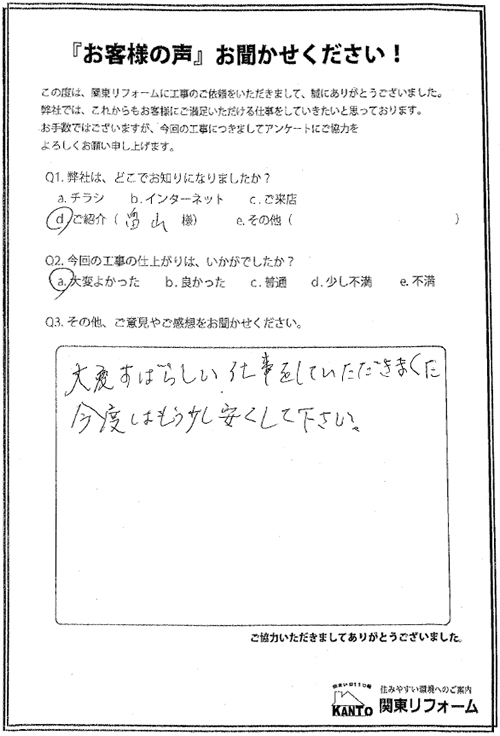 『お客様の声』お聞かせください！
この度は、関東リフォームに工事のご依頼をいただきまして、誠にありがとうございました。
弊社では、これからもお客様にご満足いただける仕事をしていきたいと思っております。
お手数ではございますが、今回の工事につきましてアンケートにご協力を
よろしくお願い申し上げます。
Q1. 弊社は、どこでお知りになりましたか？
a. チラシ b. インターネット c. ご来店
d. ご紹介（ 畠山 様） e. その他（ ）
Q2. 今回の工事の仕上がりは、いかがでしたか？
a. 大変よかった b. 良かった c. 普通 d. 少し不満 e. 不満
Q3. その他、ご意見やご感想をお聞かせください。
大変すばらしい仕事をしていただきました
今度はもう少し安くして下さい。
ご協力いただきましてありがとうございました。
住まいの110番
KANTO
住みやすい環境へのご案内
関東リフォーム